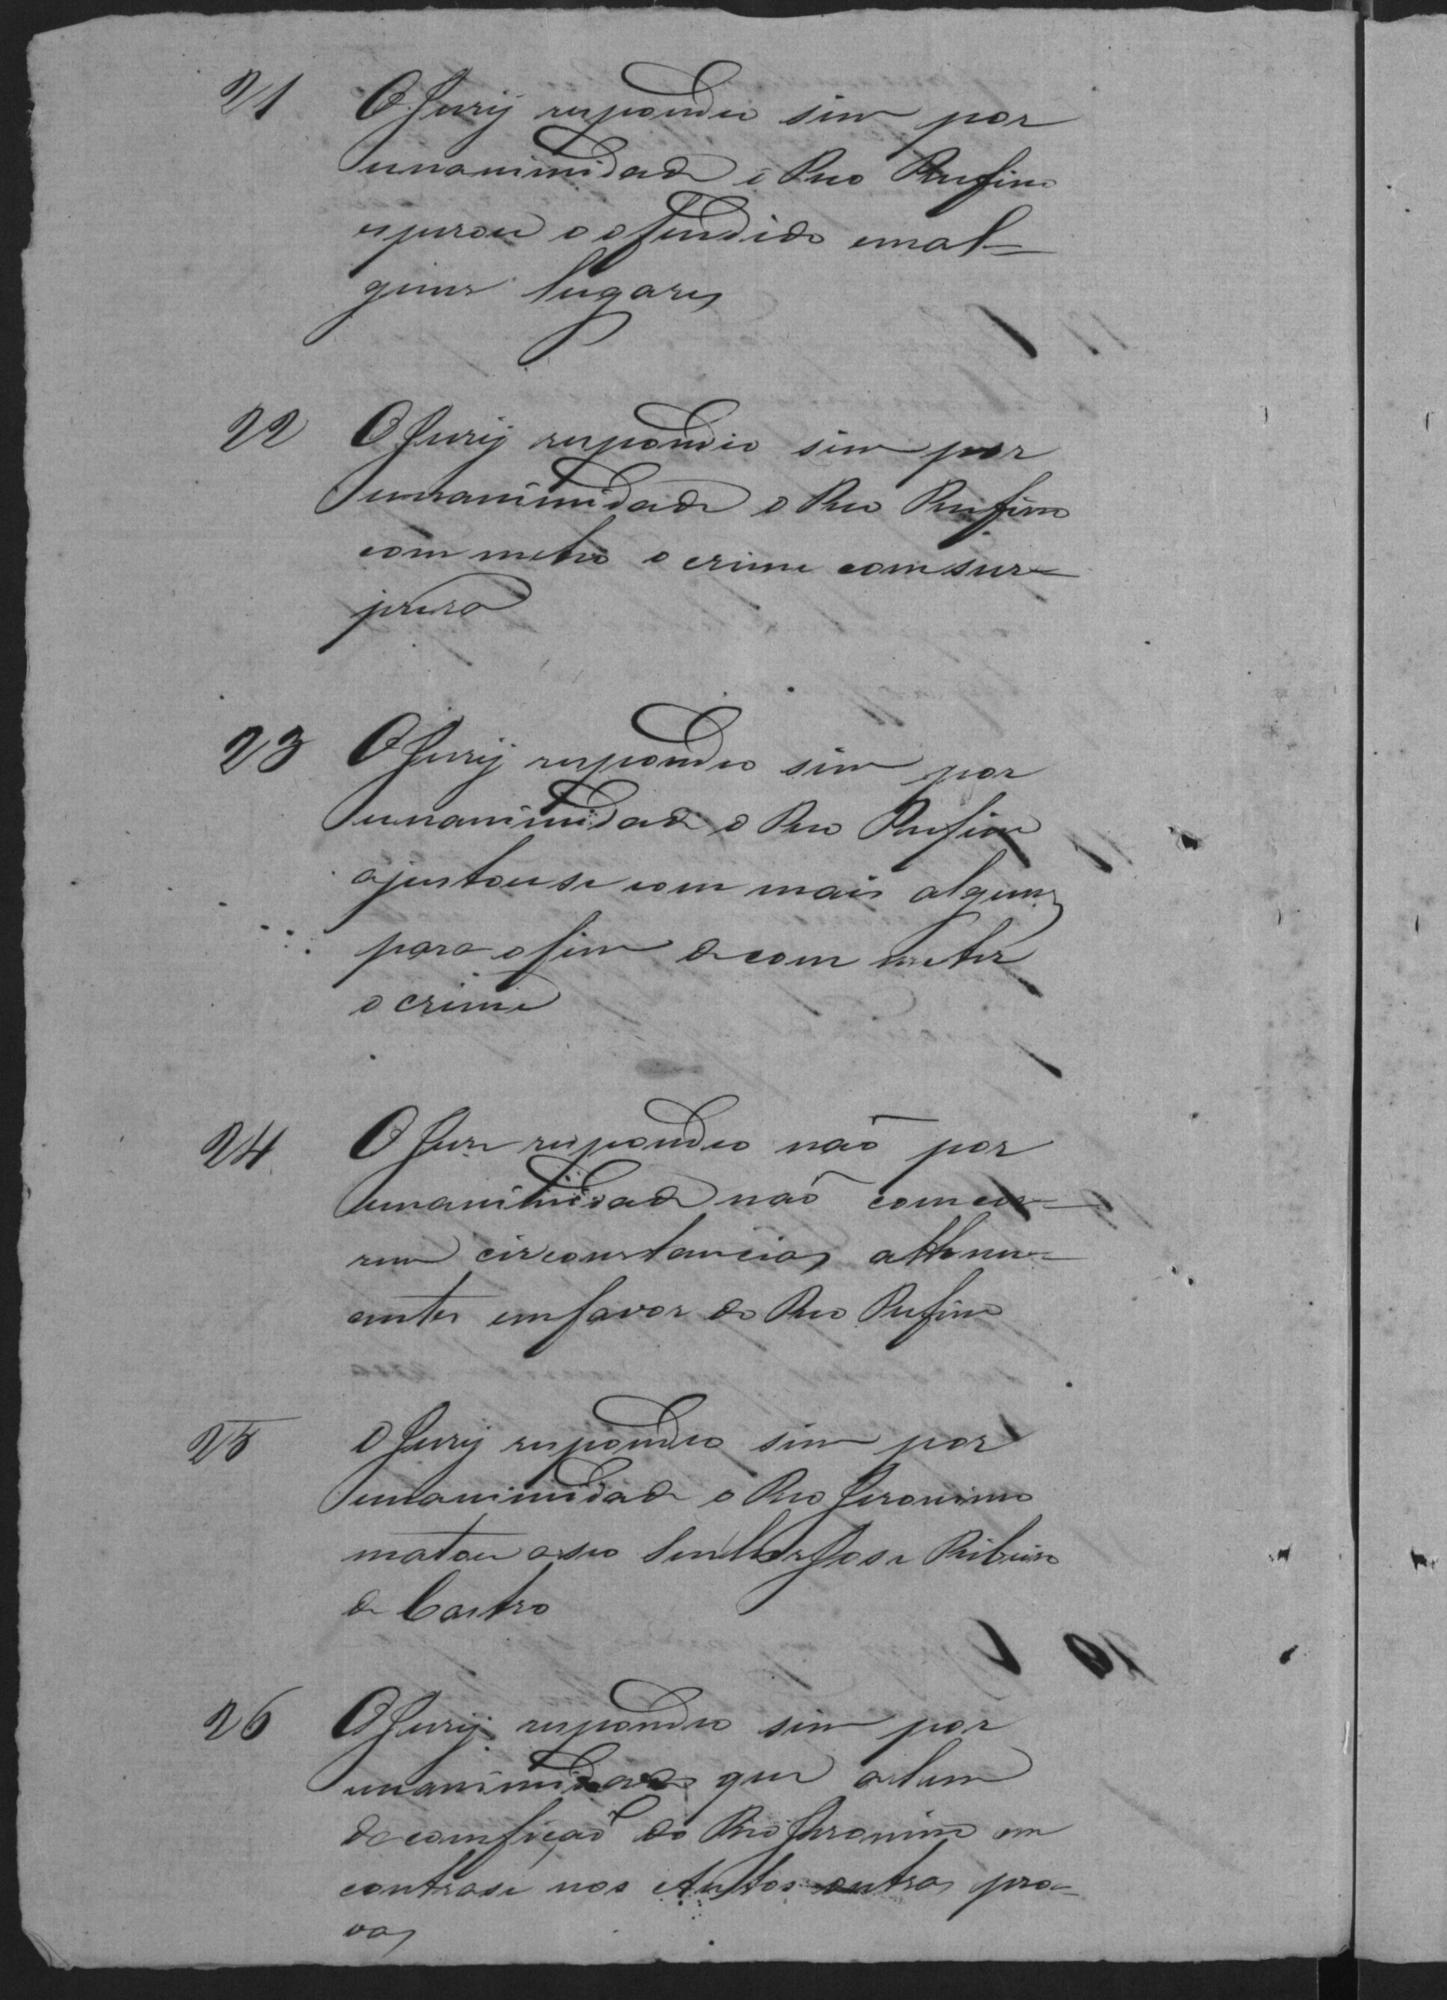 21 O Jury respondeo sim por
unanimidade o Reo Rufino
esperou o ofendido em al-
guns lugares
22 O Jury respondeo sim por
unanimidade o Reo Rufino
com meteo o crime com sur-
preza
23 O Jury respondeo sim por
unanimidade o Reo Rufino
ajustouse com mais alguns
para o fim de com meter
o crime
24 O Jury respondeo não por
unanimidade não comcor-
rem circonstancias atthenu-
antes em favor do Reo Rufino
25 O Jury respondeo sim por
unanimidade o Reo Jeronimo
matou a seo Senhor Jose Ribeiro
de Castro
26 O Jury respondeo sim por
unanimidade que alem
da comfição do Reo Jeronimo em
contrase nos Autos outras pro-
vas